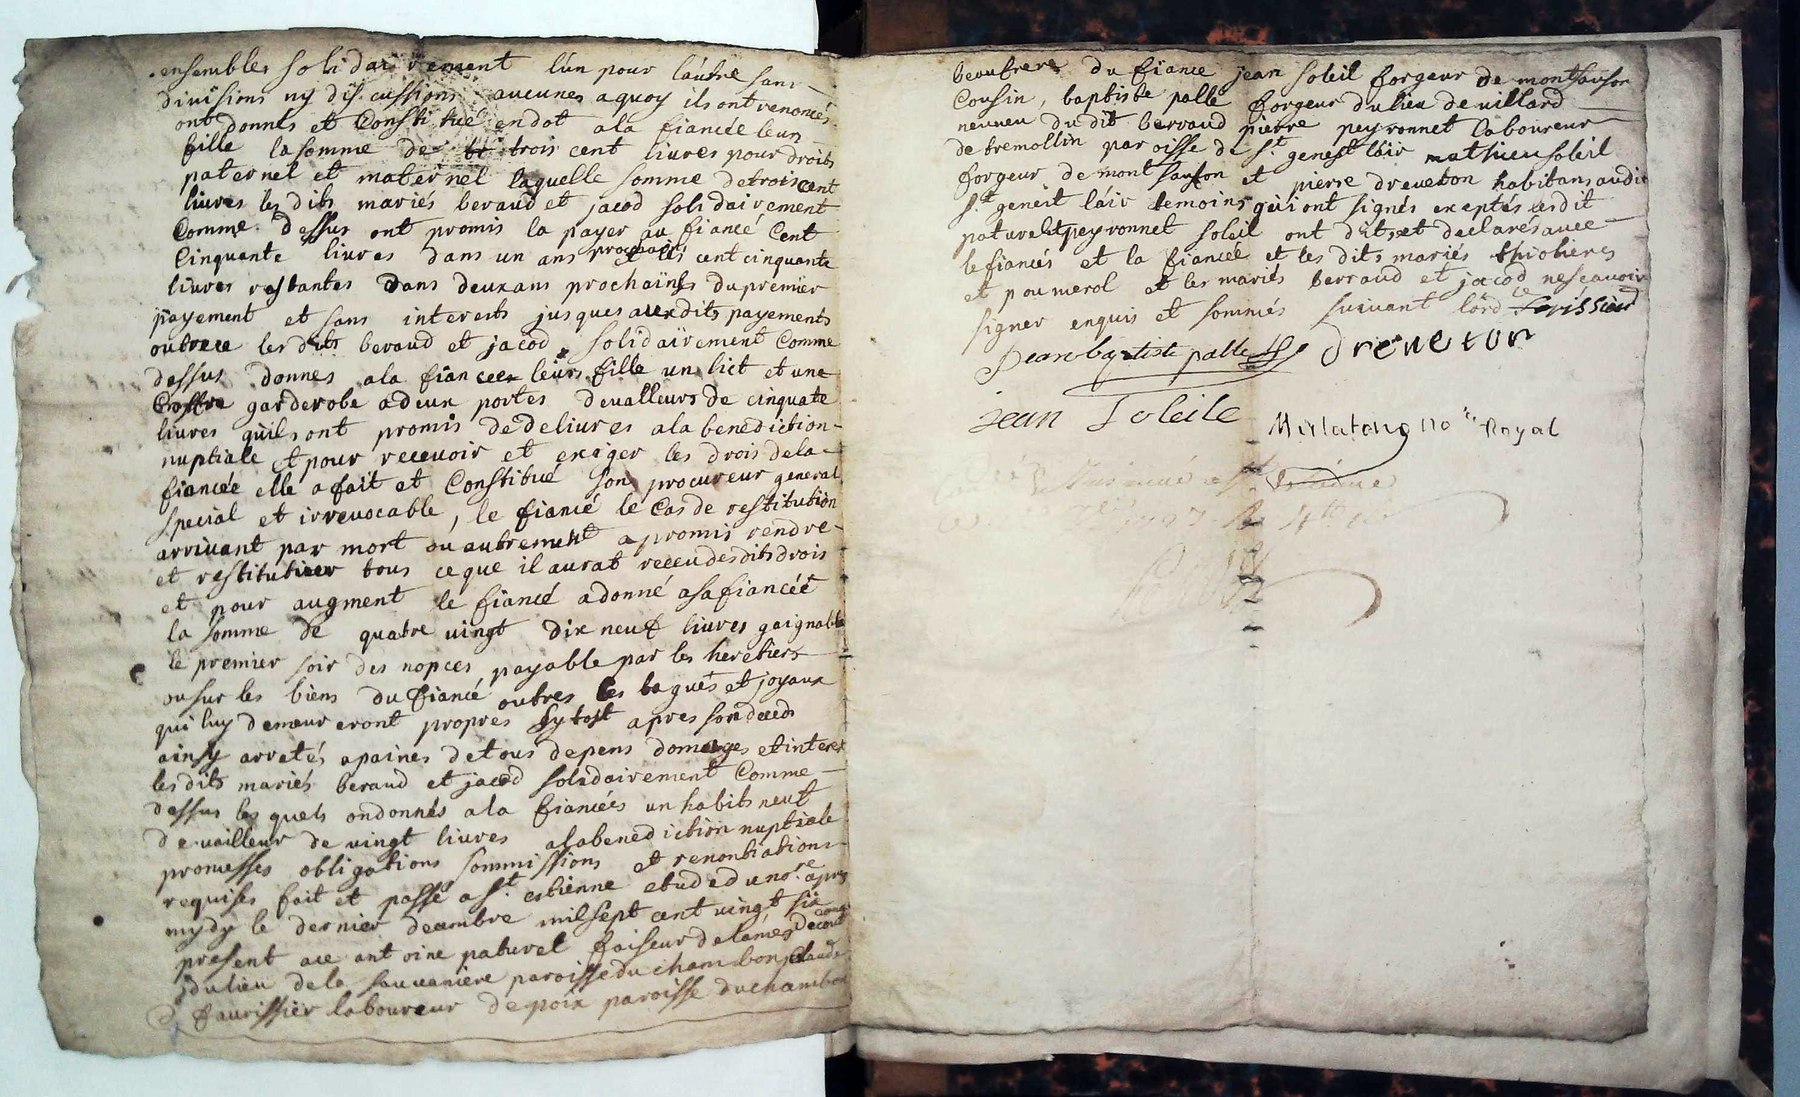 ensembles solidairement l'un pour l'autre sans
divisions ny discussions aucunes aquoy ils ont renoncés
ont donnés et Constitué en dot ala fiancée leur
fille la somme de trois cent livres pour droits
paternel et maternel laquelle somme de trois cent
livres les dits mariés beraud et jacod solidairement
Comme dessus ont promis la payer au fiancé Cent
Cinquante livres dans un ans prochains et les cent cinquante
livres restantes dans deux ans prochains du premier
payement et sans interests jusques auxdits payements
outre ce les dits beraud et jacod solidairement Comme
dessus donnes ala fiancée leur fille un lict et une
Coffre garderobe adeux portes devalleurs de cinquate
livres quils ont promis de delivres ala benediction
nuptiale et pour recevoir et exiger les drois dela
fiancée elle a fait et Constitué son procureur general
special et irrevocable, le fiancé le Cas de restitution
arrivant par mort ou autrement a promis rendre
et restitutiuer tous ce que il aurat receu desdits drois
et pour augment le fiancé adonné asa fiancéé
la somme de quatre vingt dix neuf livres gaignable
le premier soir des nopces payable par les heretiers
ou sur les biens du fiancé outres les bagues et joyaux
qui luy demeureront propres sytost apres son deceds
ainsy arretés apaines de tous depens domages et interest
les dits mariés beraud et jacod solidairement Comme
dessus les quels ondonnés ala fiancées un habits neuf
devailleur de vingt livres alabenediction nuptiale
promesses obligations sommissions et renontiations
requises fait et passé a St estienne etude du nore apres
mydy le dernier decembre mil sept cent vingt six
present ace antoine paturel faiseur de lames
du lieu dela sauvaniere paroisse du chambon Claude
faurissier laboureur de poix paroisse du chambon
beaufrere du fiance jean soleil forgeur de montsauson
Cousin, baptiste palle forgeur du lieu de villard
neuveu du dit berraud pierre peyronnet laboureur
de tremollin paroisse de St genest lair mathieu soleil
forgeur de montsauson et pierre dreveton habitans audit
St geneit lair temoins qui ont signés exeptés lesdit
paturel et peyronnet soleil ont dits et declarés avec
le fiancés et la fiancéé et les dits mariés thiolieres
et poumerol et les mariés berraud et jacod ne scavoir
signer enquis et sommés suivant lord ce
Jean baptiste palle dreveton
jean Soleile
no re Royal